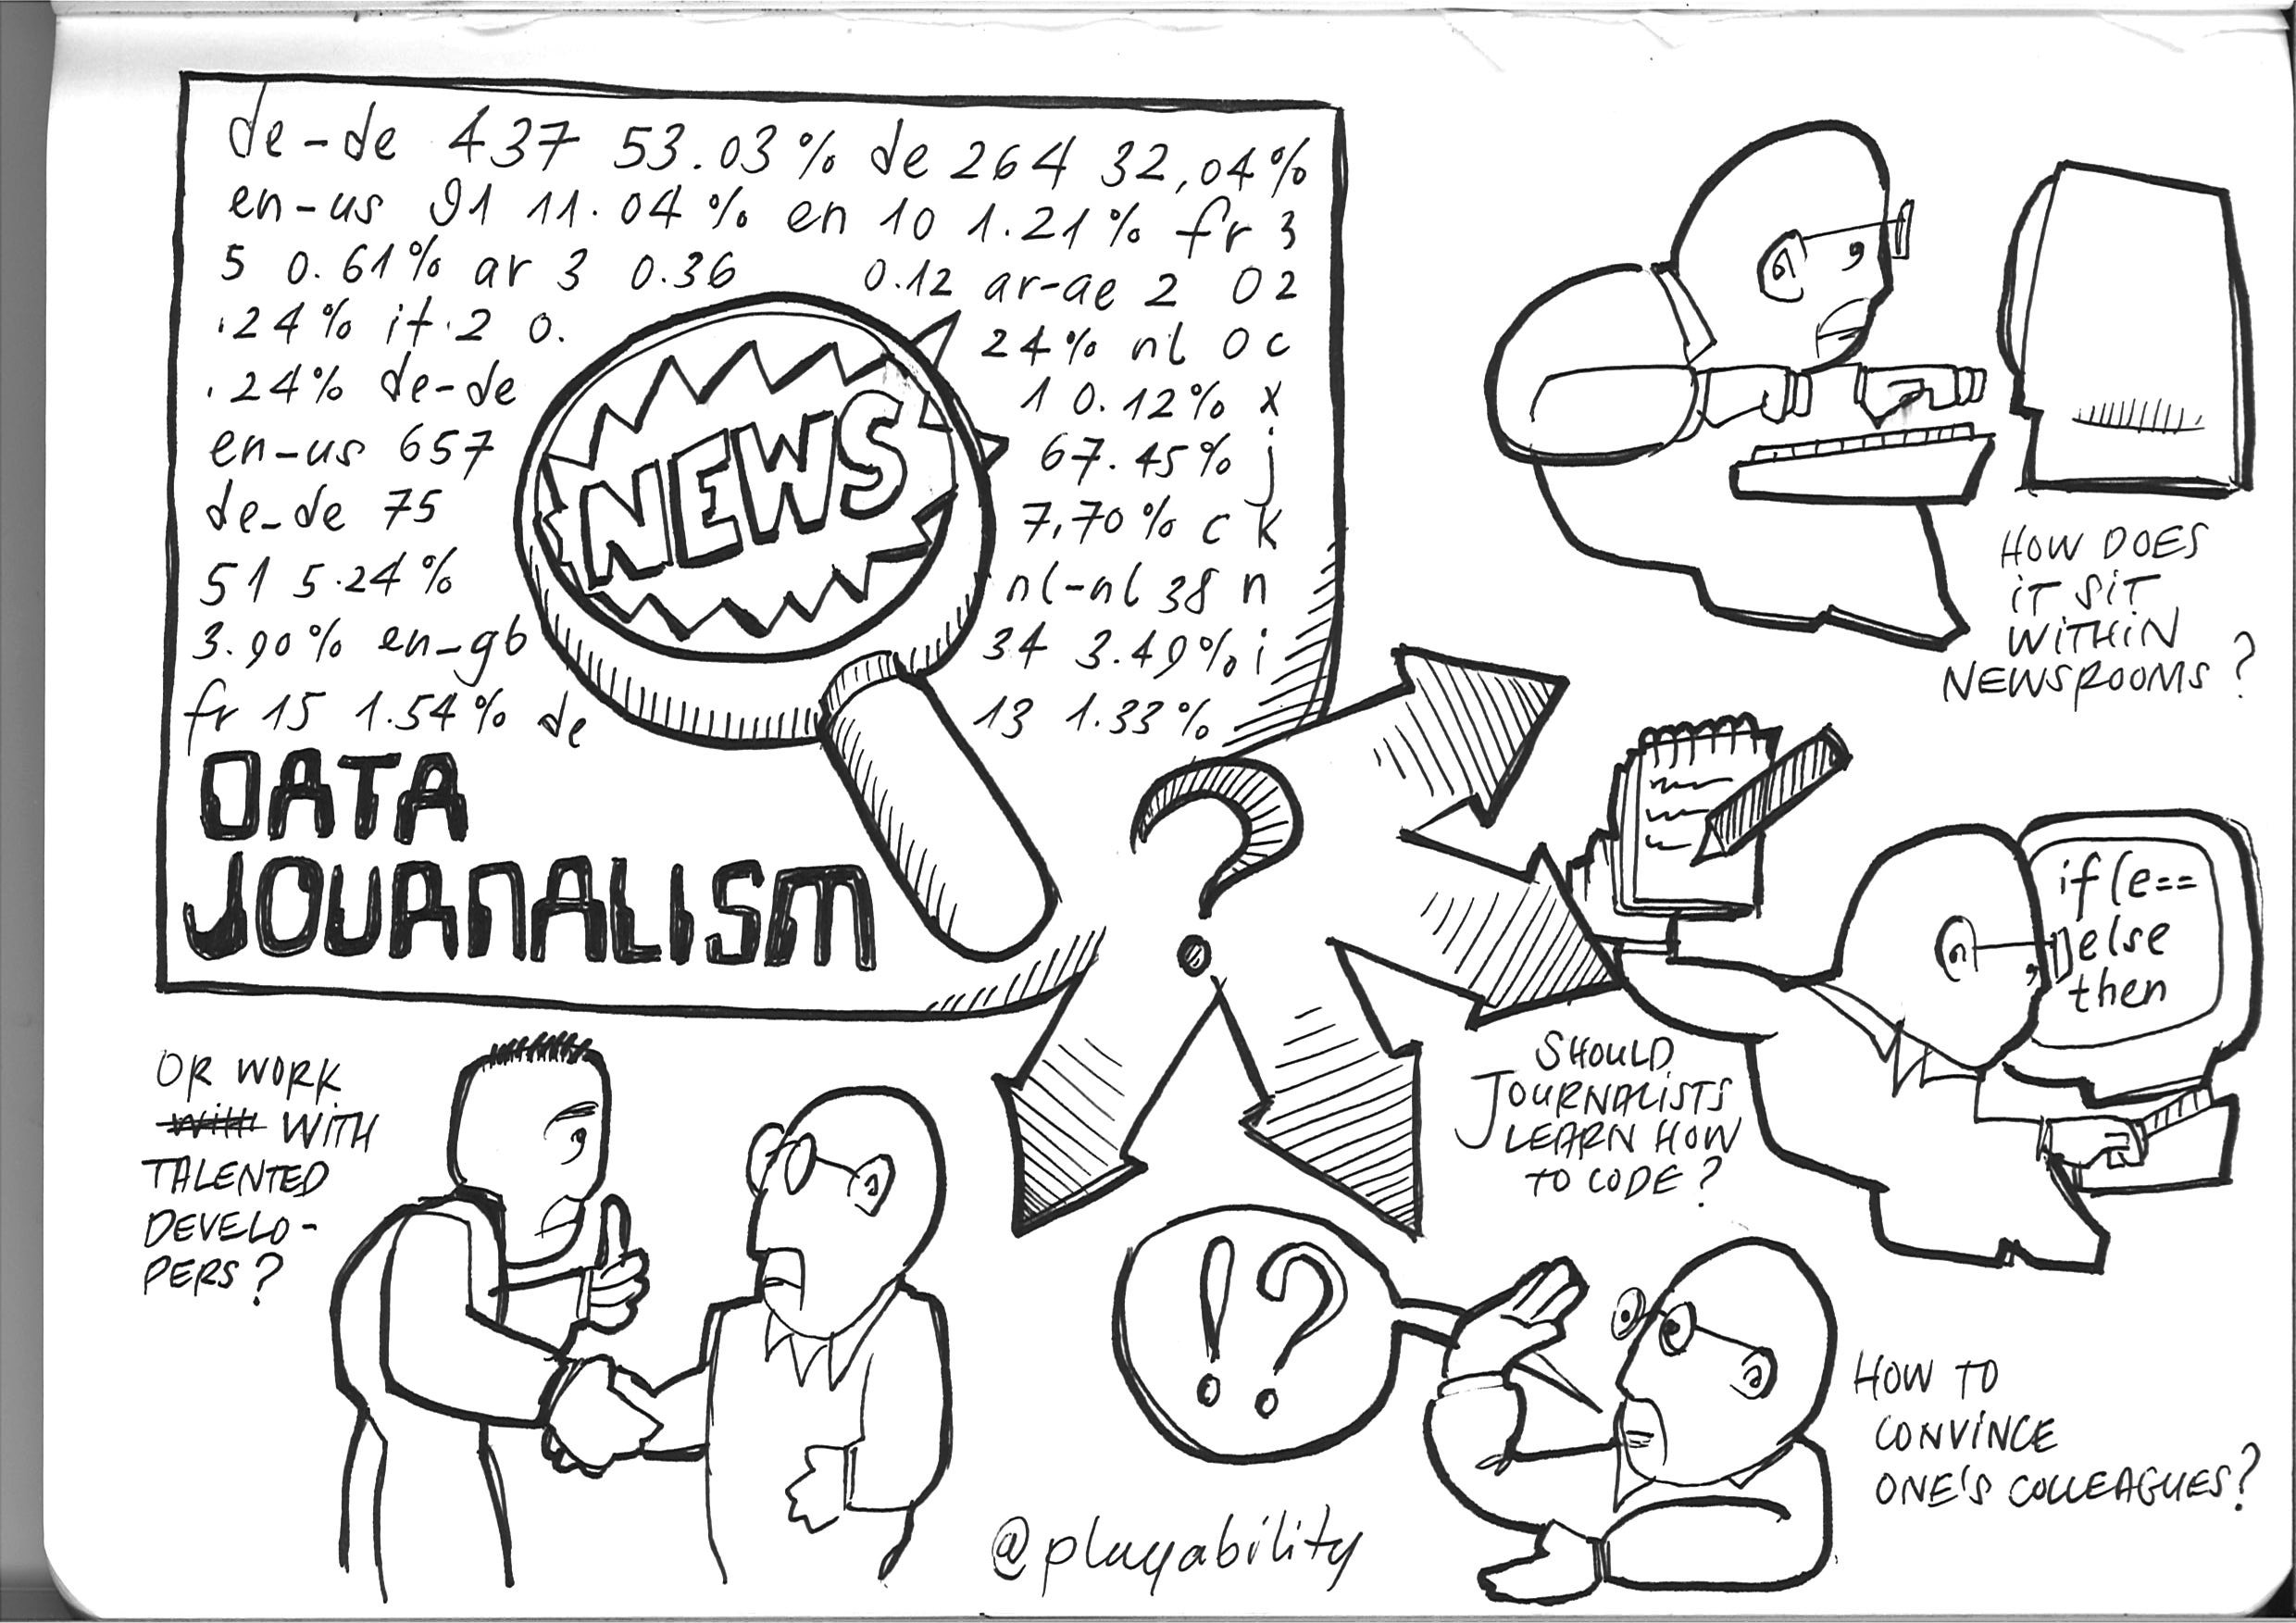 de-de 437 53.03% de 264 32,04%
en-us 91 11.04% en 10 1.21% fr 3
5 0.61% ar 3 0.36 0.12 ar-ae 2 02
.24% it.2 0. 24% nl 0c
.24% de-de 1 0.12% x
en-us 657 67.45% j
de-de 75 7,70% c k
51 5.24% nl-nl 38 n
3.90% en-gb 34 3.49% i
fr 15 1.54% de 13 1.33%
NEWS
DATA
JOURNALISM
?
HOW DOES
iT SiT
WiTHiN
NEWSROOMS?
if (e==
)else
then
SHOULD
JOURNALISTS
LEARN HOW
TO CODE?
OR WORK
with WITH
TALENTED
DEVELO-
PERS?
!?
HOW TO
CONVINCE
ONE'S COLLEAGUES?
@playability